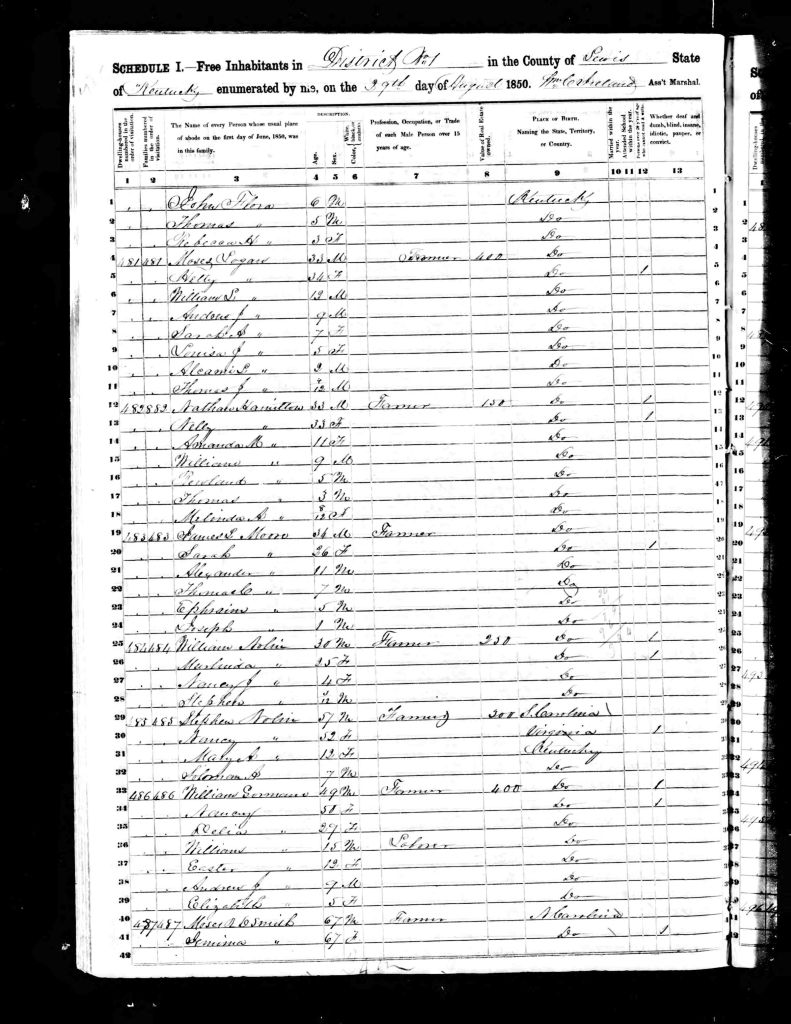 SCHEDULE I.—Free Inhabitants in District No 1 in the County of Lewis State
of Kentucky enumerated by me, on the 29th day of August 1850. Ass't Marshal.
Dwelling-houses numbered in the order of visitation.
Families numbered in the order of visitation.
The Name of every Person whose usual place of abode on the first day of June, 1850, was in this family.
DESCRIPTION.
Age.
Sex.
Color, White, black, or mulatto.
Profession, Occupation, or Trade of each Male Person over 15 years of age.
Value of Real Estate owned.
PLACE OF BIRTH.
Naming the State, Territory, or Country.
Married within the year.
Attended School within the year.
Whether deaf and dumb, blind, insane, idiotic, pauper, or convict.
1 2 3 4 5 6 7 8 9 10 11 12 13
1 John Flora 6 M Kentucky 1
2 Thomas " 5 M Do 2
3 Rebecca A " 3 F Do 3
4 481 481 Moses Logan 33 M Farmer 400 Do 4
5 " 34 F Do 1 5
6 William L " 12 M Do 6
7 Andrew J " 9 M Do 7
8 Sarah A " 7 F Do 8
9 Louisa J " 5 F Do 9
10 " 2 M Do 10
11 Thomas J " /12 M Do 11
12 482 482 Nathan Hamilton 33 M Farmer 150 Do 1 12
13 Nelly " 33 F Do 1 13
14 Amanda M " 11 F Do 14
15 William " 9 M Do 15
16 Rowland " 5 M Do 16
17 Thomas " 3 M Do 17
18 Melinda A " 8/12 F Do 18
19 483 483 James L Moore 34 M Farmer Do 19
20 Sarah " 26 F Do 1 20
21 Alexander " 11 M Do 21
22 Thomas C " 7 M Do 22
23 Ephraim " 5 M Do 23
24 Joseph " 1 M Do 24
25 484 484 William Nolin 30 M Farmer 250 Do 1 25
26 " 25 F Do 1 26
27 Nancy J " 4 F Do 27
28 Stephen " /12 M Do 28
29 485 485 Stephen Nolin 57 M Farmer 300 S. Carolina 29
30 Nancy " 52 F Virginia 1 30
31 Mary A " 12 F Kentucky 31
32 Soloman A " 7 M Do 32
33 486 486 William 49 M Farmer 400 Do 1 33
34 Nancy " 50 F Do 1 34
35 Delia " 27 F Do 35
36 William " 15 M Laborer Do 36
37 Easter " 12 F Do 37
38 Andrew J " 9 M Do 38
39 Elizabeth " 5 F Do 39
40 487 487 Moses Smith 67 M Farmer N. Carolina 40
41 Jemima " 67 F Do 1 41
42